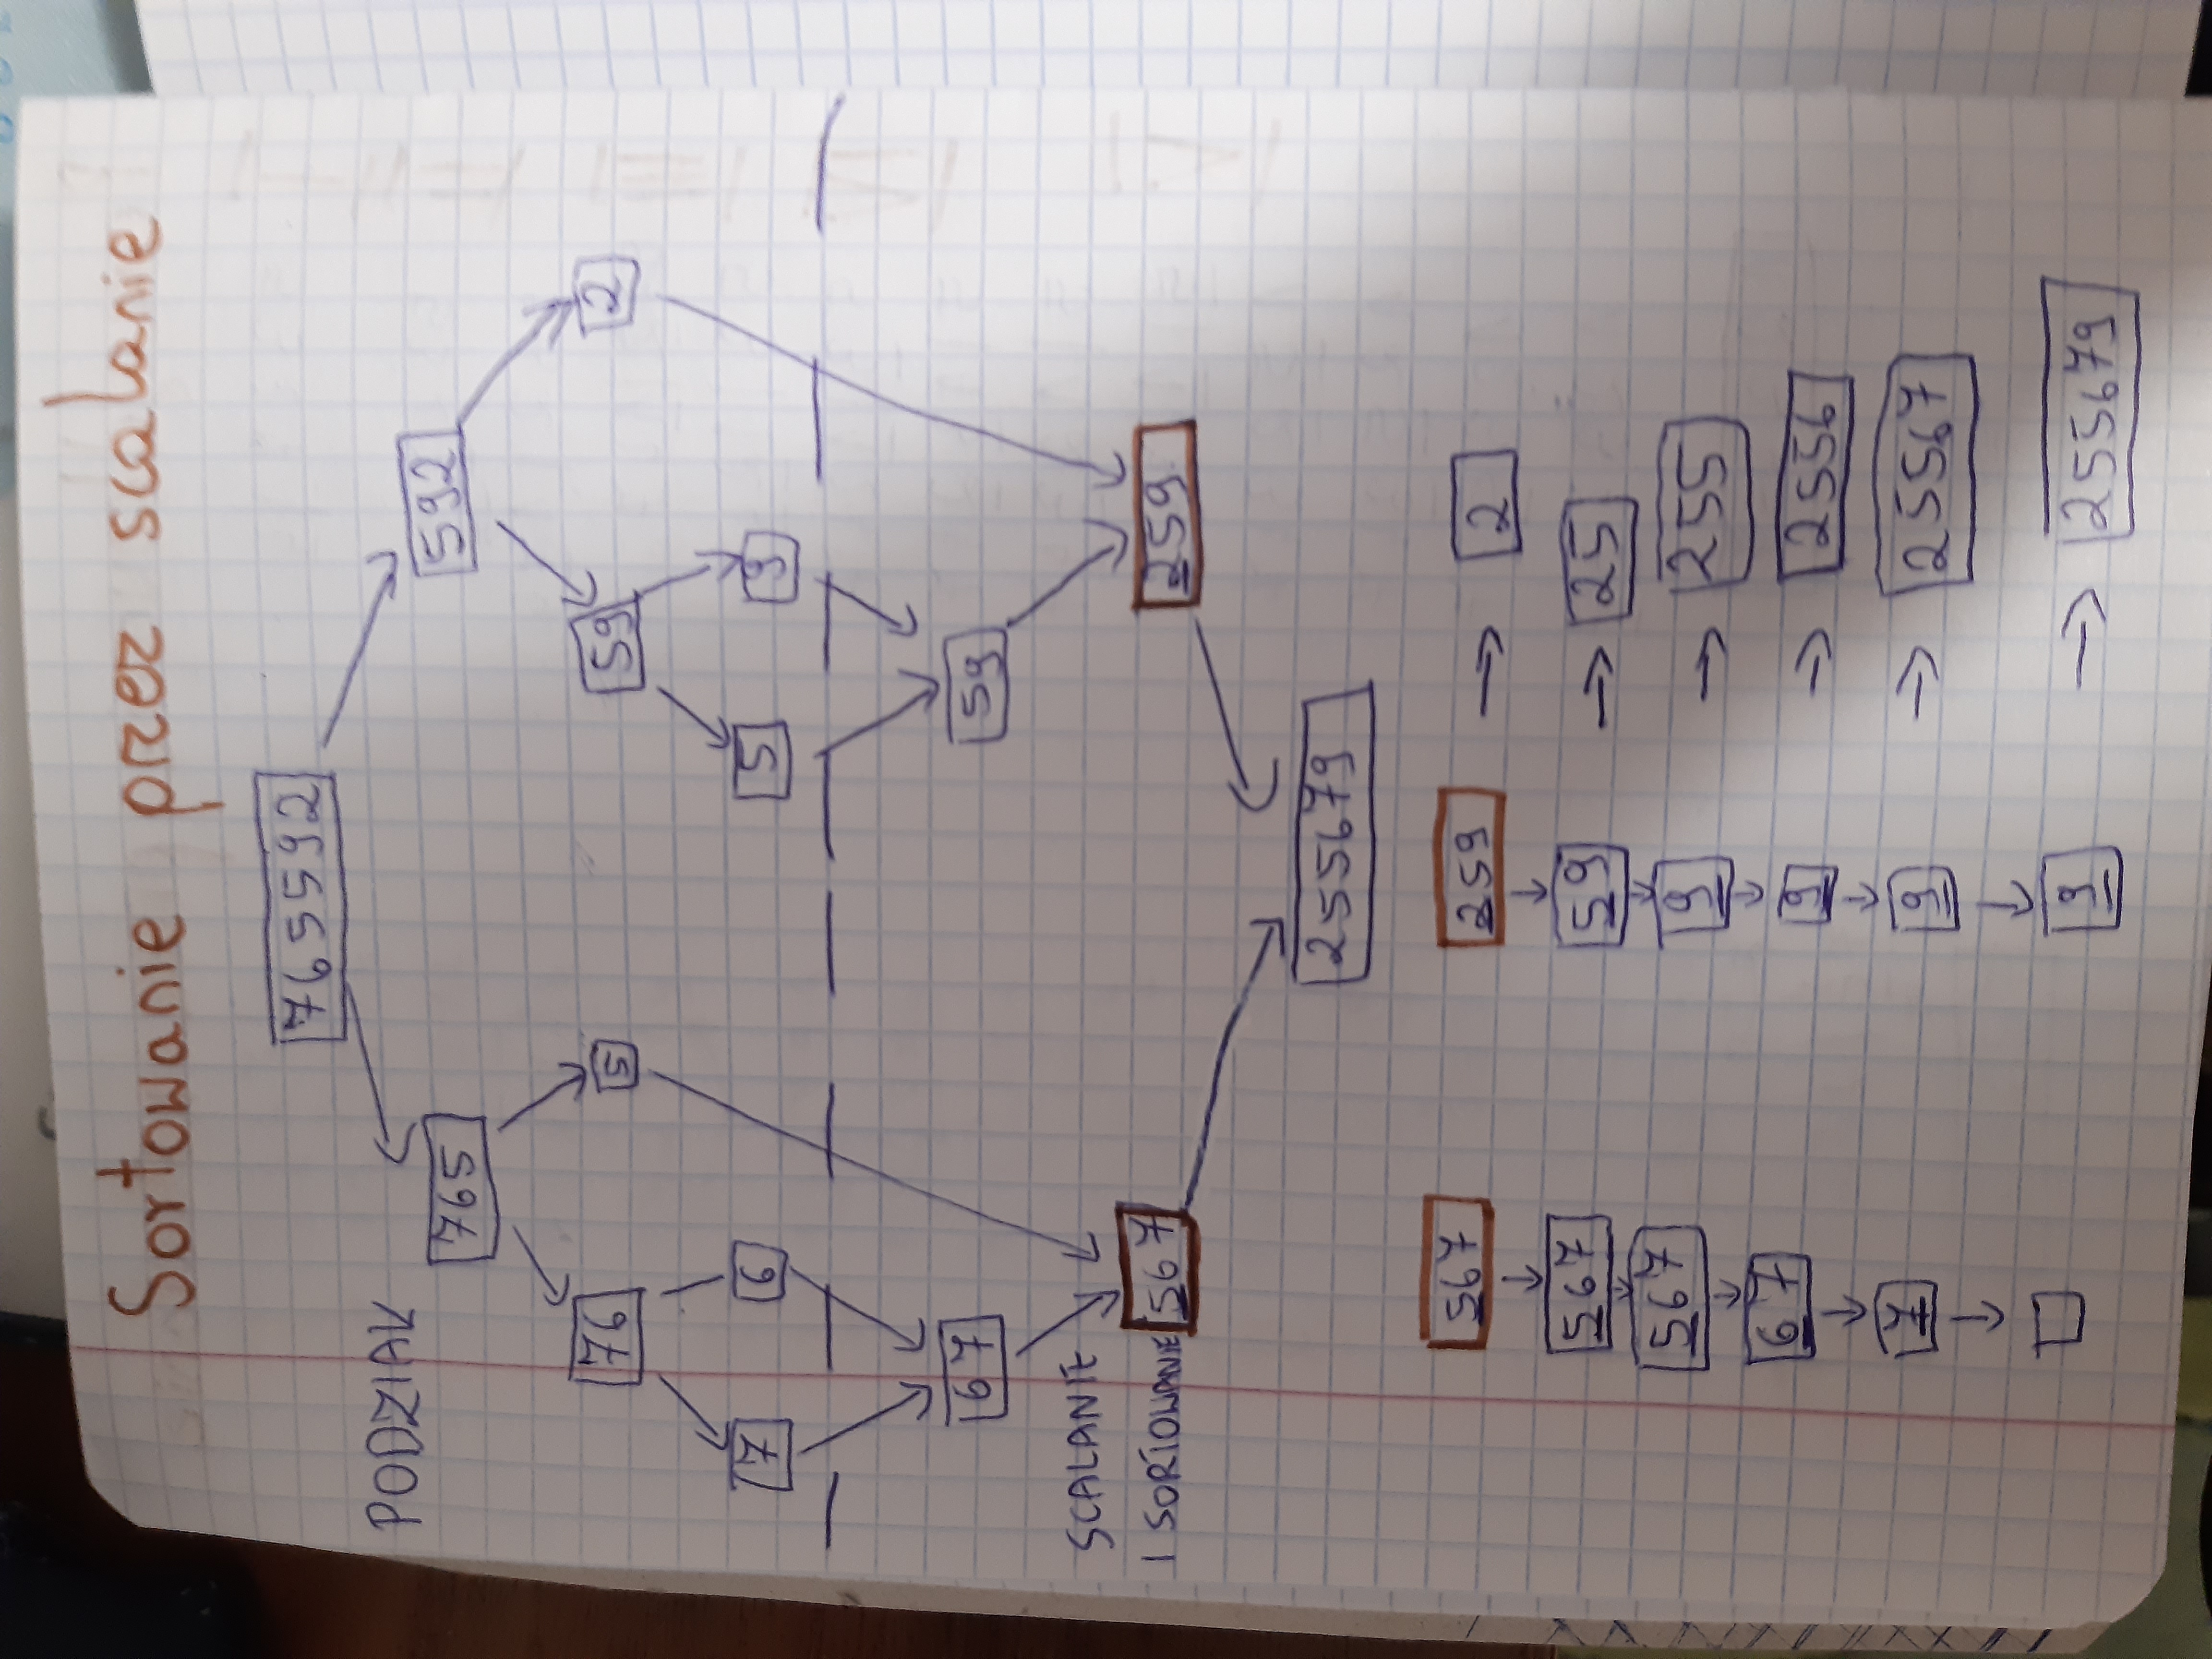 Sortowanie przez scalanie
765592
PODZIAŁ
765 592
76 5 59 2
7 6 5 9
67 59
SCALANIE
I SORTOWANIE 567 259
255679
567 259 → 2
567 59 → 25
567 9 → 255
67 9 → 2556
7 9 → 25567
9 → 255679